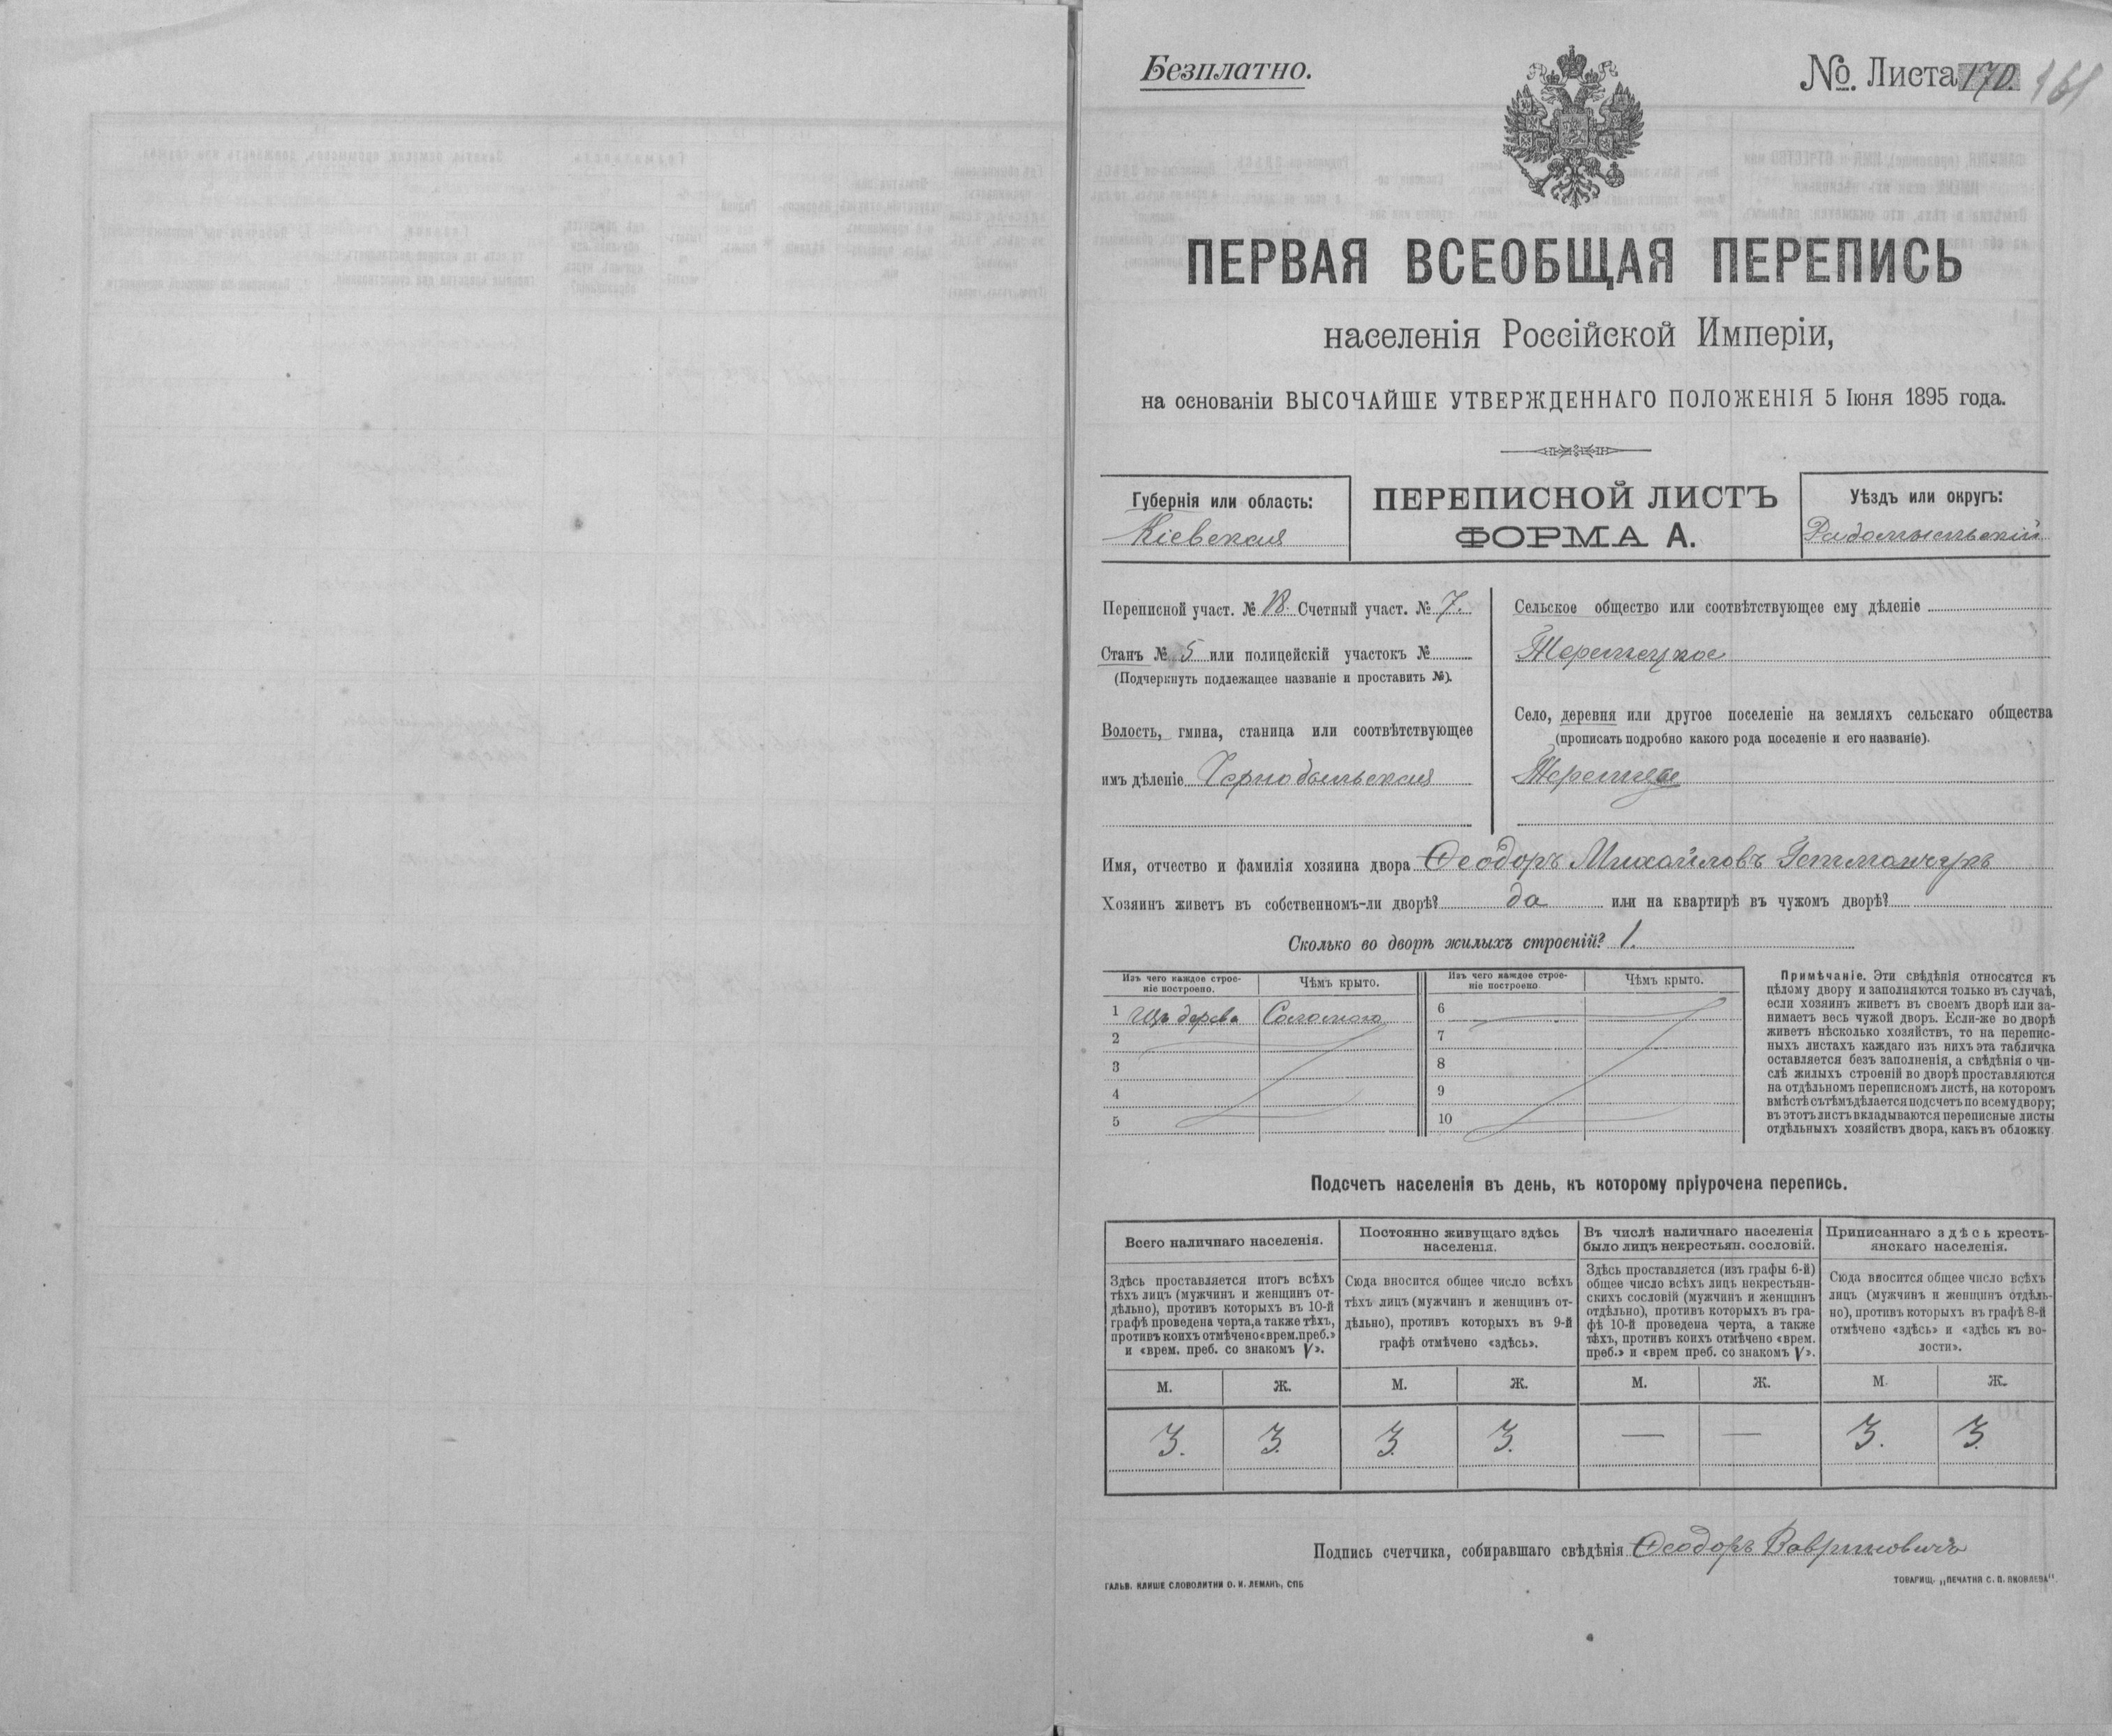 Безплатно.
№. Листа 170. 161
ПЕРВАЯ ВСЕОБЩАЯ ПЕРЕПИСЬ
населенія Россійской Имперіи,
на основаніи ВЫСОЧАЙШЕ УТВЕРЖДЕННАГО ПОЛОЖЕНІЯ 5 Іюня 1895 года.
Губернія или область:
Кіевская
ПЕРЕПИСНОЙ ЛИСТЪ
ФОРМА А.
Уѣздъ или округъ:
Радомысльскій
Переписной участ. № 18. Счетный участ. № 7.
Станъ № 5 или полицейскій участокъ №
(Подчеркнуть подлежащее названіе и проставить №).
Волость, гмина, станица или соотвѣтствующее
имъ дѣленіе Чернобыльская
Сельское общество или соотвѣтствующее ему дѣленіе
Теремецкое
Село, деревня или другое поселеніе на земляхъ сельскаго общества
(прописать подробно какого рода поселеніе и его названіе).
Теремцы
Имя, отчество и фамилія хозяина двора Ѳеодоръ Михайловъ Гетманчукъ
Хозяинъ живетъ въ собственномъ-ли дворѣ? да или на квартирѣ въ чужомъ дворѣ?
Сколько во дворѣ жилыхъ строеній? 1.
Изъ чего каждое строе-
ніе построено.
Чѣмъ крыто.
Изъ чего каждое строе-
ніе построено
Чѣмъ крыто.
1 Изъ дерева Соломою
2
3
4
5
6
7
8
9
10
Примѣчаніе. Эти свѣдѣнія относятся къ
цѣлому двору и заполняются только въ случаѣ,
если хозяинъ живетъ въ своемъ дворѣ или за-
нимаетъ весь чужой дворъ. Если-же во дворѣ
живетъ нѣсколько хозяйствъ, то на перепис-
ныхъ листахъ каждаго изъ нихъ эта табличка
оставляется безъ заполненія, а свѣдѣнія о чи-
слѣ жилыхъ строеній во дворѣ проставляются
на отдѣльномъ переписномъ листѣ, на которомъ
вмѣстѣ съ тѣмъ дѣлается подсчетъ по всему двору;
въ этотъ листъ вкладываются переписные листы
отдѣльныхъ хозяйствъ двора, какъ въ обложку.
Подсчетъ населенія въ день, къ которому пріурочена перепись.
Всего наличнаго населенія.
Здѣсь проставляется итогъ всѣхъ
тѣхъ лицъ (мужчинъ и женщинъ от-
дѣльно), противъ которыхъ въ 10-й
графѣ проведена черта, а также тѣхъ,
противъ коихъ отмѣчено «врем. преб.»
и «врем. преб. со знакомъ V».
Постоянно живущаго здѣсь
населенія.
Сюда вносится общее число всѣхъ
тѣхъ лицъ (мужчинъ и женщинъ от-
дѣльно), противъ которыхъ въ 9-й
графѣ отмѣчено «здѣсь».
Въ числѣ наличнаго населенія
было лицъ некрестьян. сословій.
Здѣсь проставляется (изъ графы 6-й)
общее число всѣхъ лицъ некрестьян-
скихъ сословій (мужчинъ и женщинъ
отдѣльно), противъ которыхъ въ гра-
фѣ 10-й проведена черта, а также
тѣхъ, противъ коихъ отмѣчено «врем.
преб.» и «врем преб. со знакомъ V».
Приписаннаго здѣсь кресть-
янскаго населенія.
Сюда вносится общее число всѣхъ
лицъ (мужчинъ и женщинъ отдѣль-
но), противъ которыхъ въ графѣ 8-й
отмѣчено «здѣсь» и «здѣсь въ во-
лости».
М. Ж. М. Ж. М. Ж. М. Ж.
3. 3. 3. 3. — — 3. 3.
Подпись счетчика, собиравшаго свѣдѣнія Ѳеодоръ Вавриновичъ
ГАЛЬВ. КЛИШЕ СЛОВОЛИТНИ О. И. ЛЕМАНЪ, СПБ
ТОВАРИЩ. „ПЕЧАТНЯ С. П. ЯКОВЛЕВА".